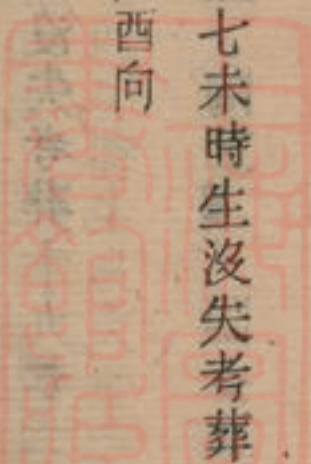 七未時生没失考葬
酉向